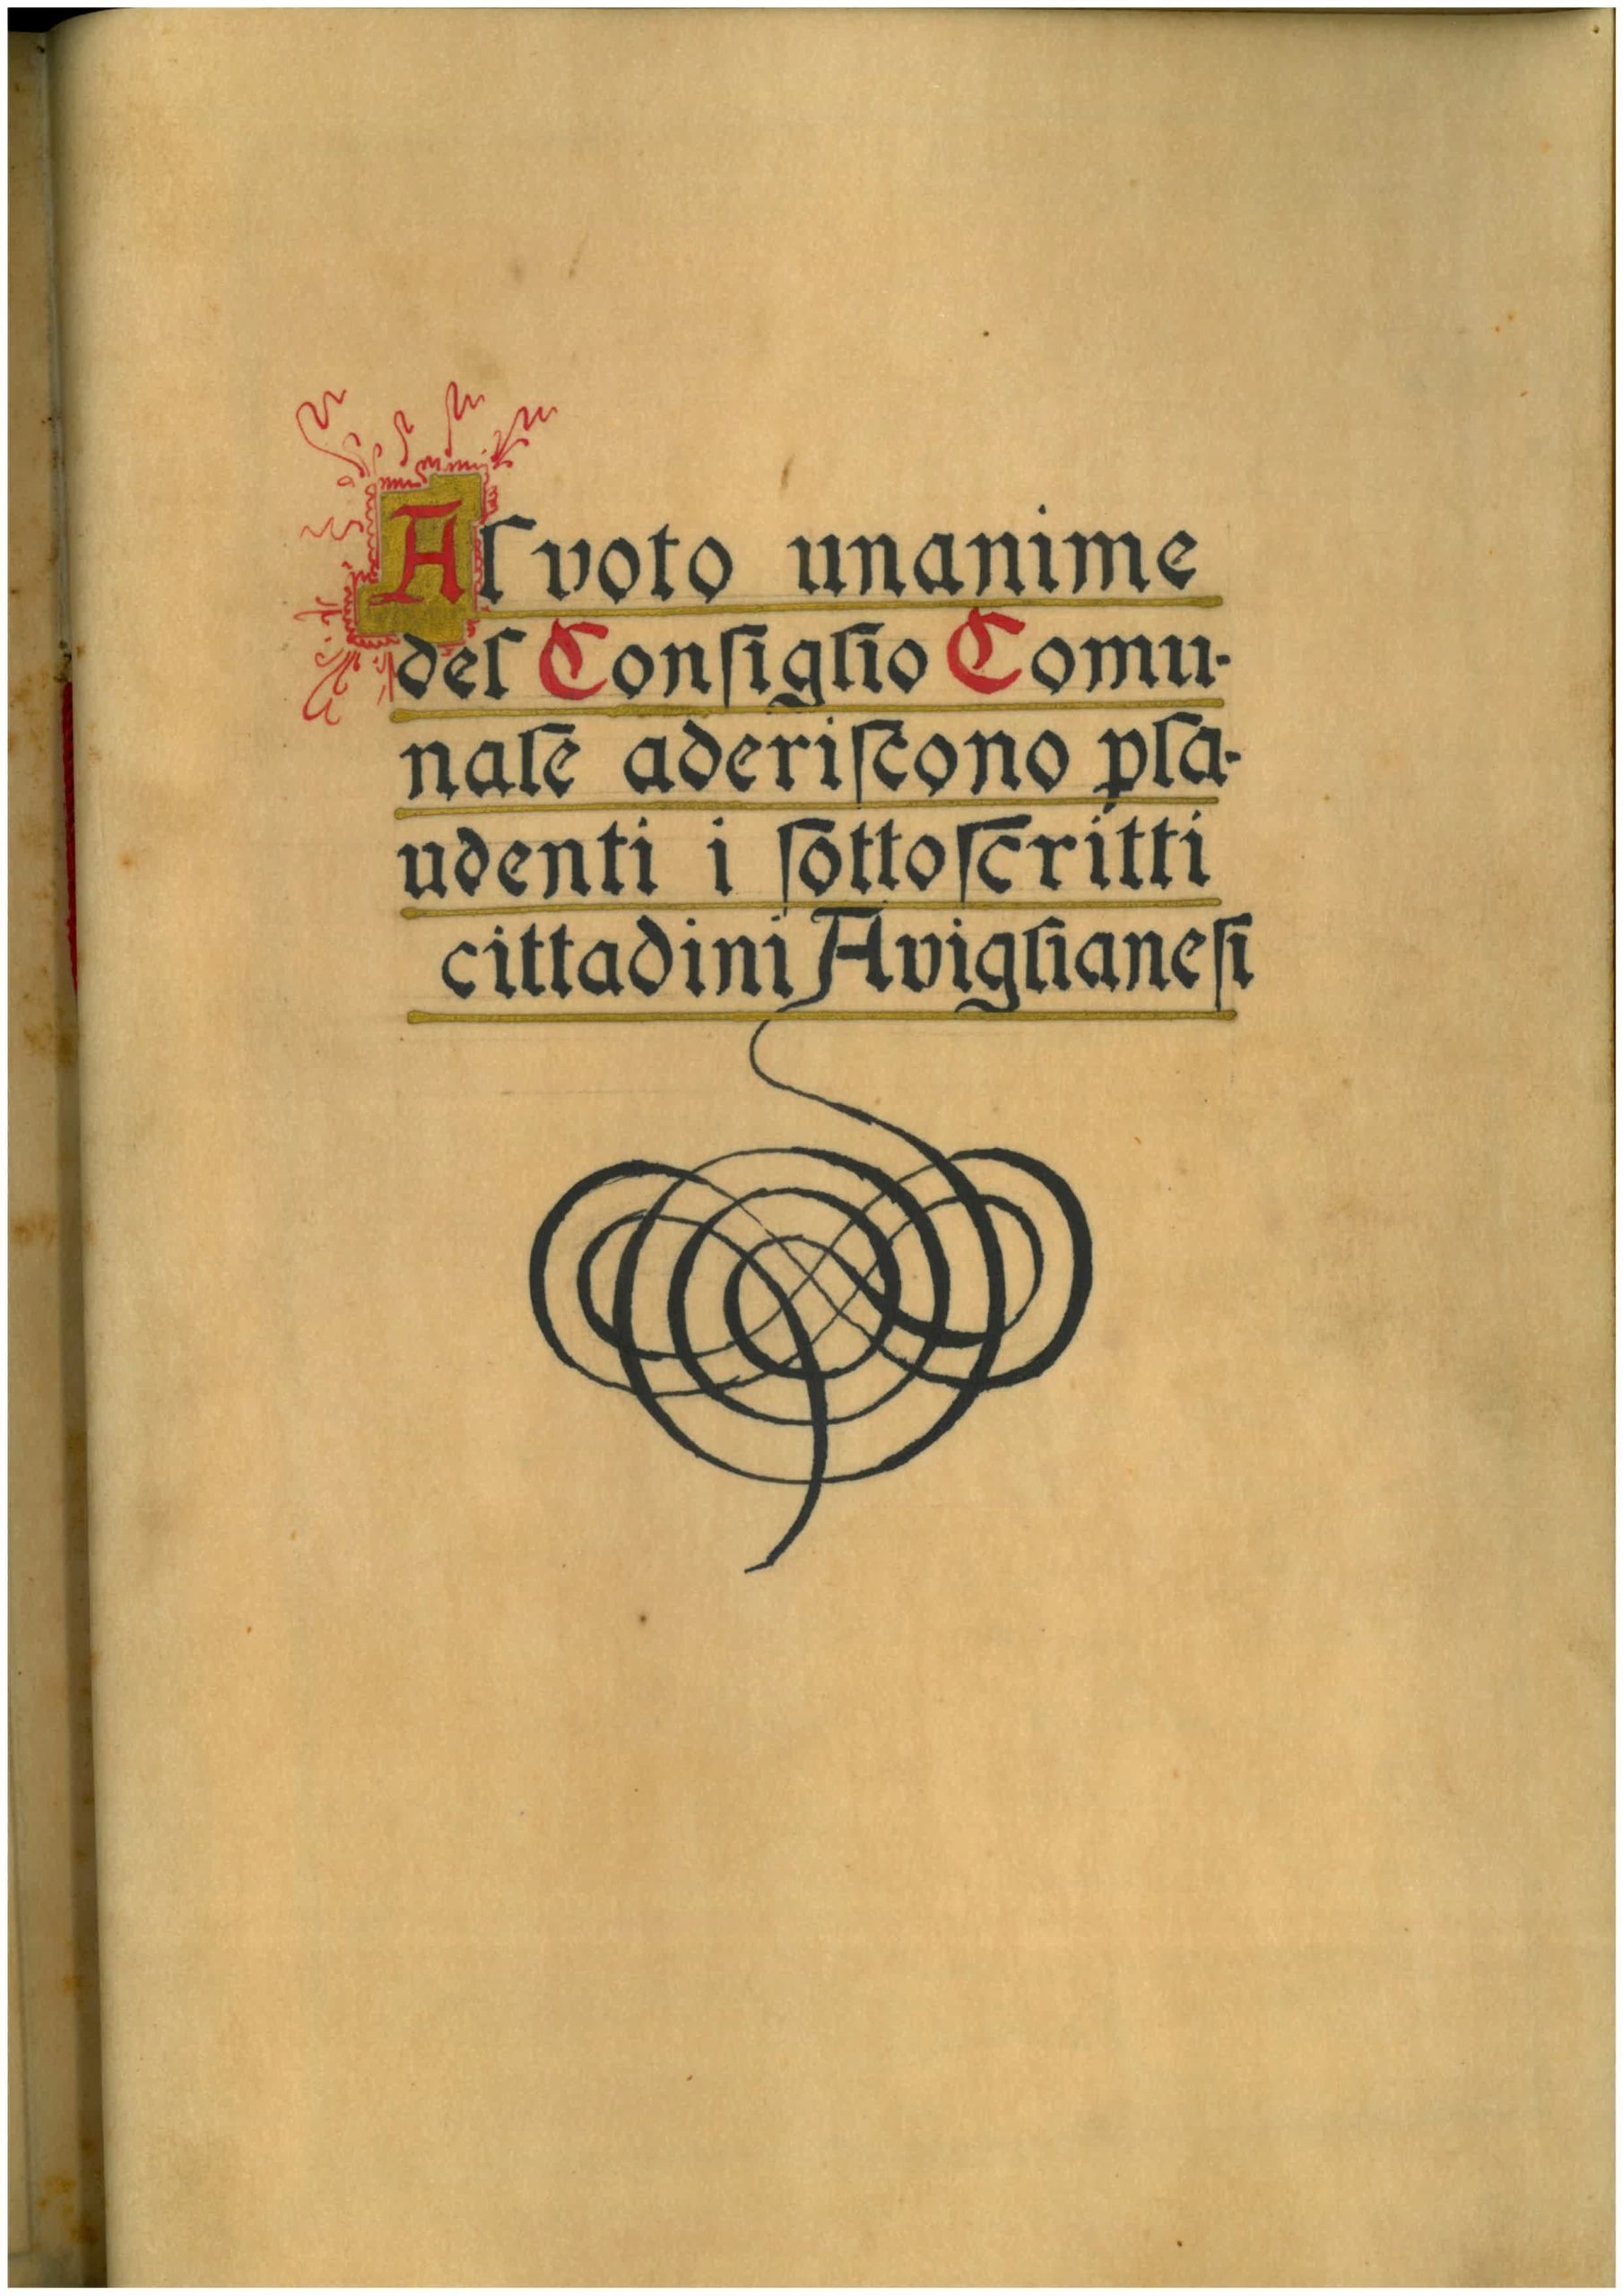 Al voto unanime
del Consiglio Comu-
nale aderiscono pla-
udenti i sottoscritti
cittadini Aviglianesi